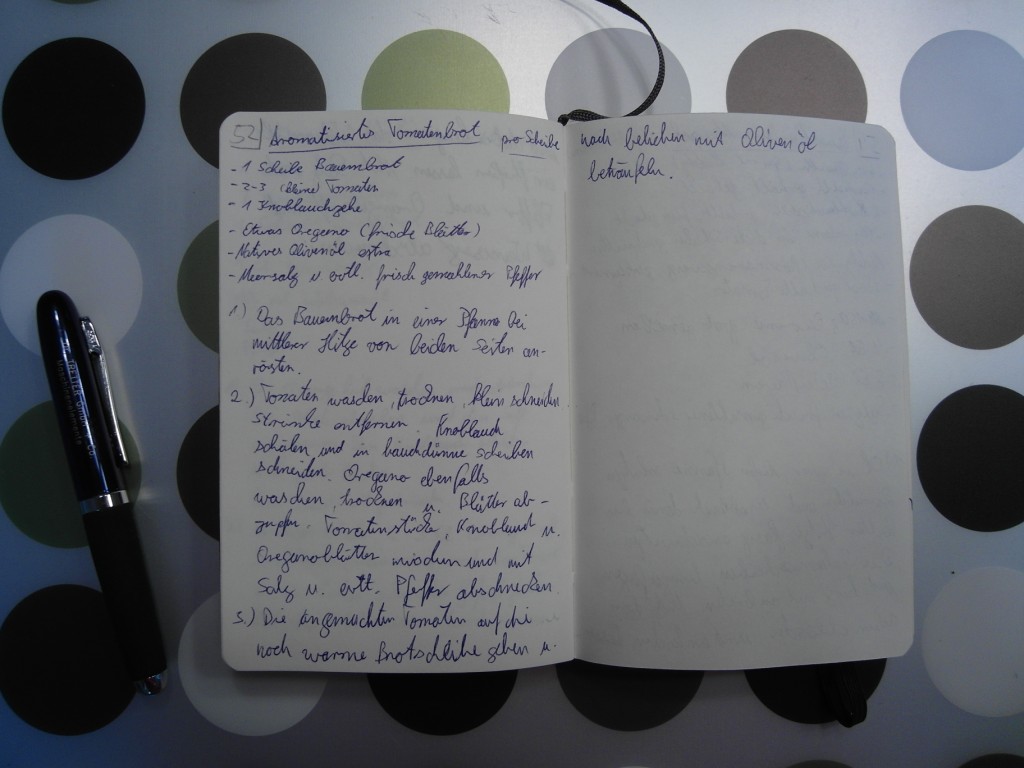 52 Aromatisiertes Tomatenbrot pro Scheibe
- 1 Scheibe Bauernbrot
- 2-3 (kleine) Tomaten
- 1 Knoblauchzehe
- Etwas Oregano (frische Blätter)
- Natives Olivenöl extra
- Meersalz u evtl. frisch gemahlener Pfeffer
1.) Das Bauernbrot in einer Pfanne bei
mittlerer Hitze von beiden Seiten an-
rösten.
2.) Tomaten waschen, trocknen, klein schneiden
Strünke entfernen. Knoblauch
schälen und in hauchdünne scheiben
schneiden. Oregano ebenfalls
waschen, trocknen u. Blätter ab-
zupfen. Tomatenstücke, Knoblauch u.
Oreganoblätter mischen und mit
Salz u. evtl. Pfeffer abschmecken.
3.) Die angemachten Tomaten auf die
noch warme Brotscheibe geben u.
nach belieben mit Olivenöl
beträufeln.